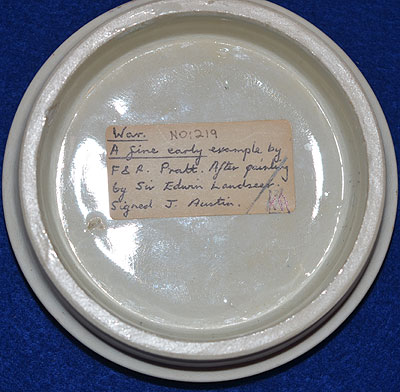 War. NO:219
A fine early example by
F & R. Pratt. After painting
by Sir Edwin Landseer.
Signed J Austin.